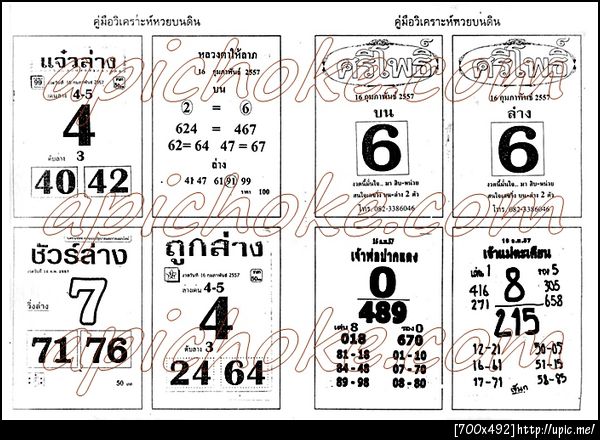 คู่มือวิเคราะห์หวยบนดิน
คู่มือวิเคราะห์หวยบนดิน
แจ๋วล่าง
99
เด่นล่าง 4-5
4
3
ดับล่าง
40 42
หลวงตาให้ลาภ
16 กุมภาพันธ์ 2557
บน
2 = 6
624 = 467
62= 64 47 = 67
ล่าง
41 47 61 91 99
ราคา 100
ศรีโพธิ์
16 กุมภาพันธ์ 2557
บน
6
งวดนี้มั่นใจ.. มา สิบ-หน่วย
สนใจเลขวิ่ง บน-ล่าง 2 ตัว
โทร. 082-3386046
ศรีโพธิ์
16 กุมภาพันธ์ 2557
ล่าง
6
งวดนี้มั่นใจ.. มา สิบ-หน่วย
สนใจเลขวิ่ง บน-ล่าง 2 ตัว
โทร. 082-3386046
ชัวร์ล่าง
วิ่งล่าง
7
71 76
50 บาท
ถูกล่าง
งวดวันที่ 16 กุมภาพันธ์ 2557
ล่างเด่น 4-5
4
3
ดับล่าง
24 64
16 ก.พ.57
เจ้าพ่อปากแดง
0
489
เด่น 8 รอง 0
018 670
81-18 01-10
84-48 07-70
89-98 08-80
16 ก.พ.57
เจ้าแม่ตะเคียน
เด่น 1 รอง 5
416 8 305
271 658
215
12-21 50-05
16-61 51-15
17-71 58-85
apichoke.com
apichoke.com
apichoke.com
apichoke.com
[700x492] http://upic.me/